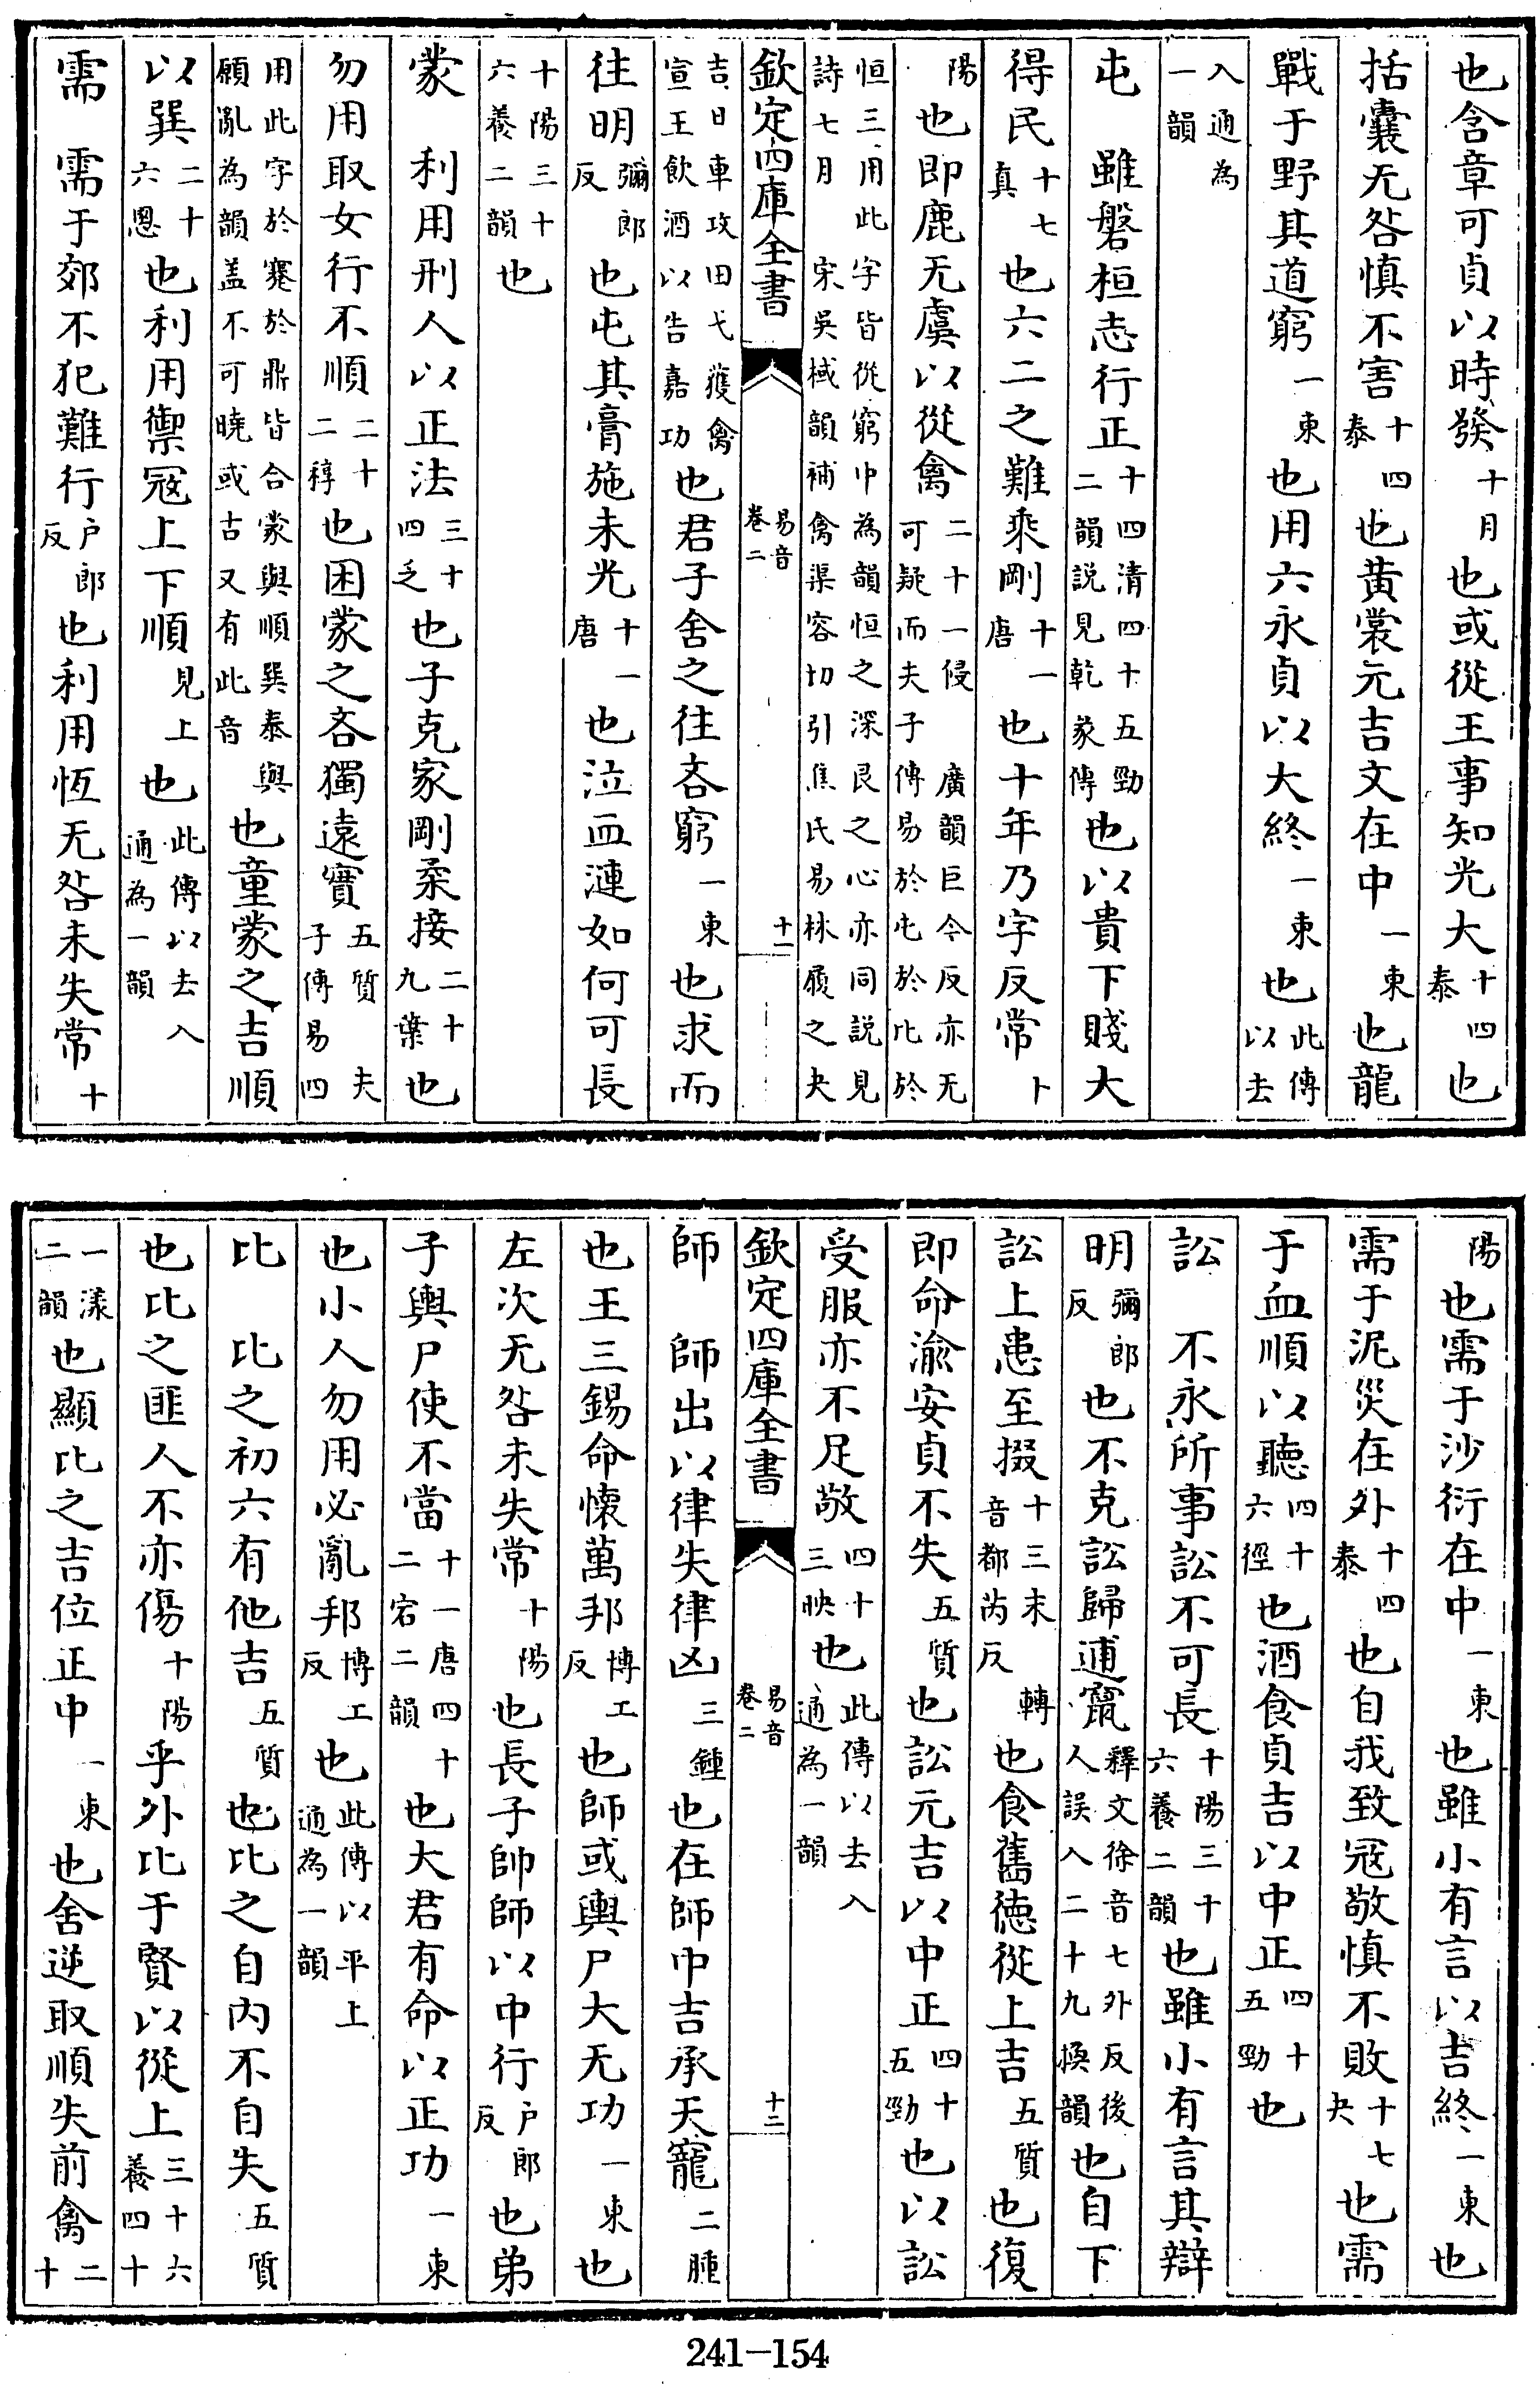 也含章可貞以時發十月也或從王事知光大十四泰也
括囊无咎慎不害十四泰也黄裳元吉文在中一東也龍
戰于野其道窮一東也用六永貞以大終一東也此傳以去
入通為一韻
屯　雖磐桓志行正十四清四十五勁二韻說見乾彖傳也以貴下賤大
得民十七真也六二之難乘剛十一唐也十年乃字反常十
陽也即鹿无虞以從禽二十一侵　廣韻巨今反亦无可疑而夫子傳易於屯於比於
恒三用此字皆從窮中為韻恒之深艮之心亦同說見詩七月　宋吳棫韻補禽渠容切引焦氏易林履之夬
欽定四庫全書　易音卷二　十一
吉日車攻田弋獲禽宣王飲酒以告嘉功也君子舍之往吝窮一東也求而
往明彌郎反也屯其膏施未光十一唐也泣血漣如何可長
十陽三十六養二韻也
蒙　利用刑人以正法三十四乏也子克家剛柔接二十九葉也
勿用取女行不順二十二稕也困蒙之吝獨遠實五質　夫子傳易四
用此字於蹇於鼎皆合蒙與順巽泰與願亂為韻盖不可曉或古又有此音也童蒙之吉順
以巽二十六慁也利用禦寇上下順見上也此傳以去入通為一韻
需　需于郊不犯難行户郎反也利用恆无咎未失常十
陽也需于沙衍在中一東也雖小有言以吉終一東也
需于泥災在外十四泰也自我致寇敬慎不敗十七夬也需
于血順以聽四十六徑也酒食貞吉以中正四十五勁也
訟　不永所事訟不可長十陽三十六養二韻也雖小有言其辯
明彌郎反也不克訟歸逋竄釋文徐音七外反後人誤入二十九換韻也自下
訟上患至掇十三末　轉音都芮反也食舊德從上吉五質也復
即命渝安貞不失五質也訟元吉以中正四十五勁也以訟
受服亦不足敬四十三映也此傳以去入通為一韻
欽定四庫全書　易音卷二　十二
師　師出以律失律凶三鍾也在師中吉承天寵二腫
也王三錫命懷萬邦博工反也師或輿尸大无功一東也
左次无咎未失常十陽也長子帥師以中行户郎反也弟
子輿尸使不當十一唐四十二宕二韻也大君有命以正功一東
也小人勿用必亂邦博工反也此傳以平上通為一韻
比　比之初六有他吉五質也比之自内不自失五質
也比之匪人不亦傷十陽乎外比于賢以從上三十六養四十
一漾二韻也顯比之吉位正中一東也舍逆取順失前禽二十
241-154